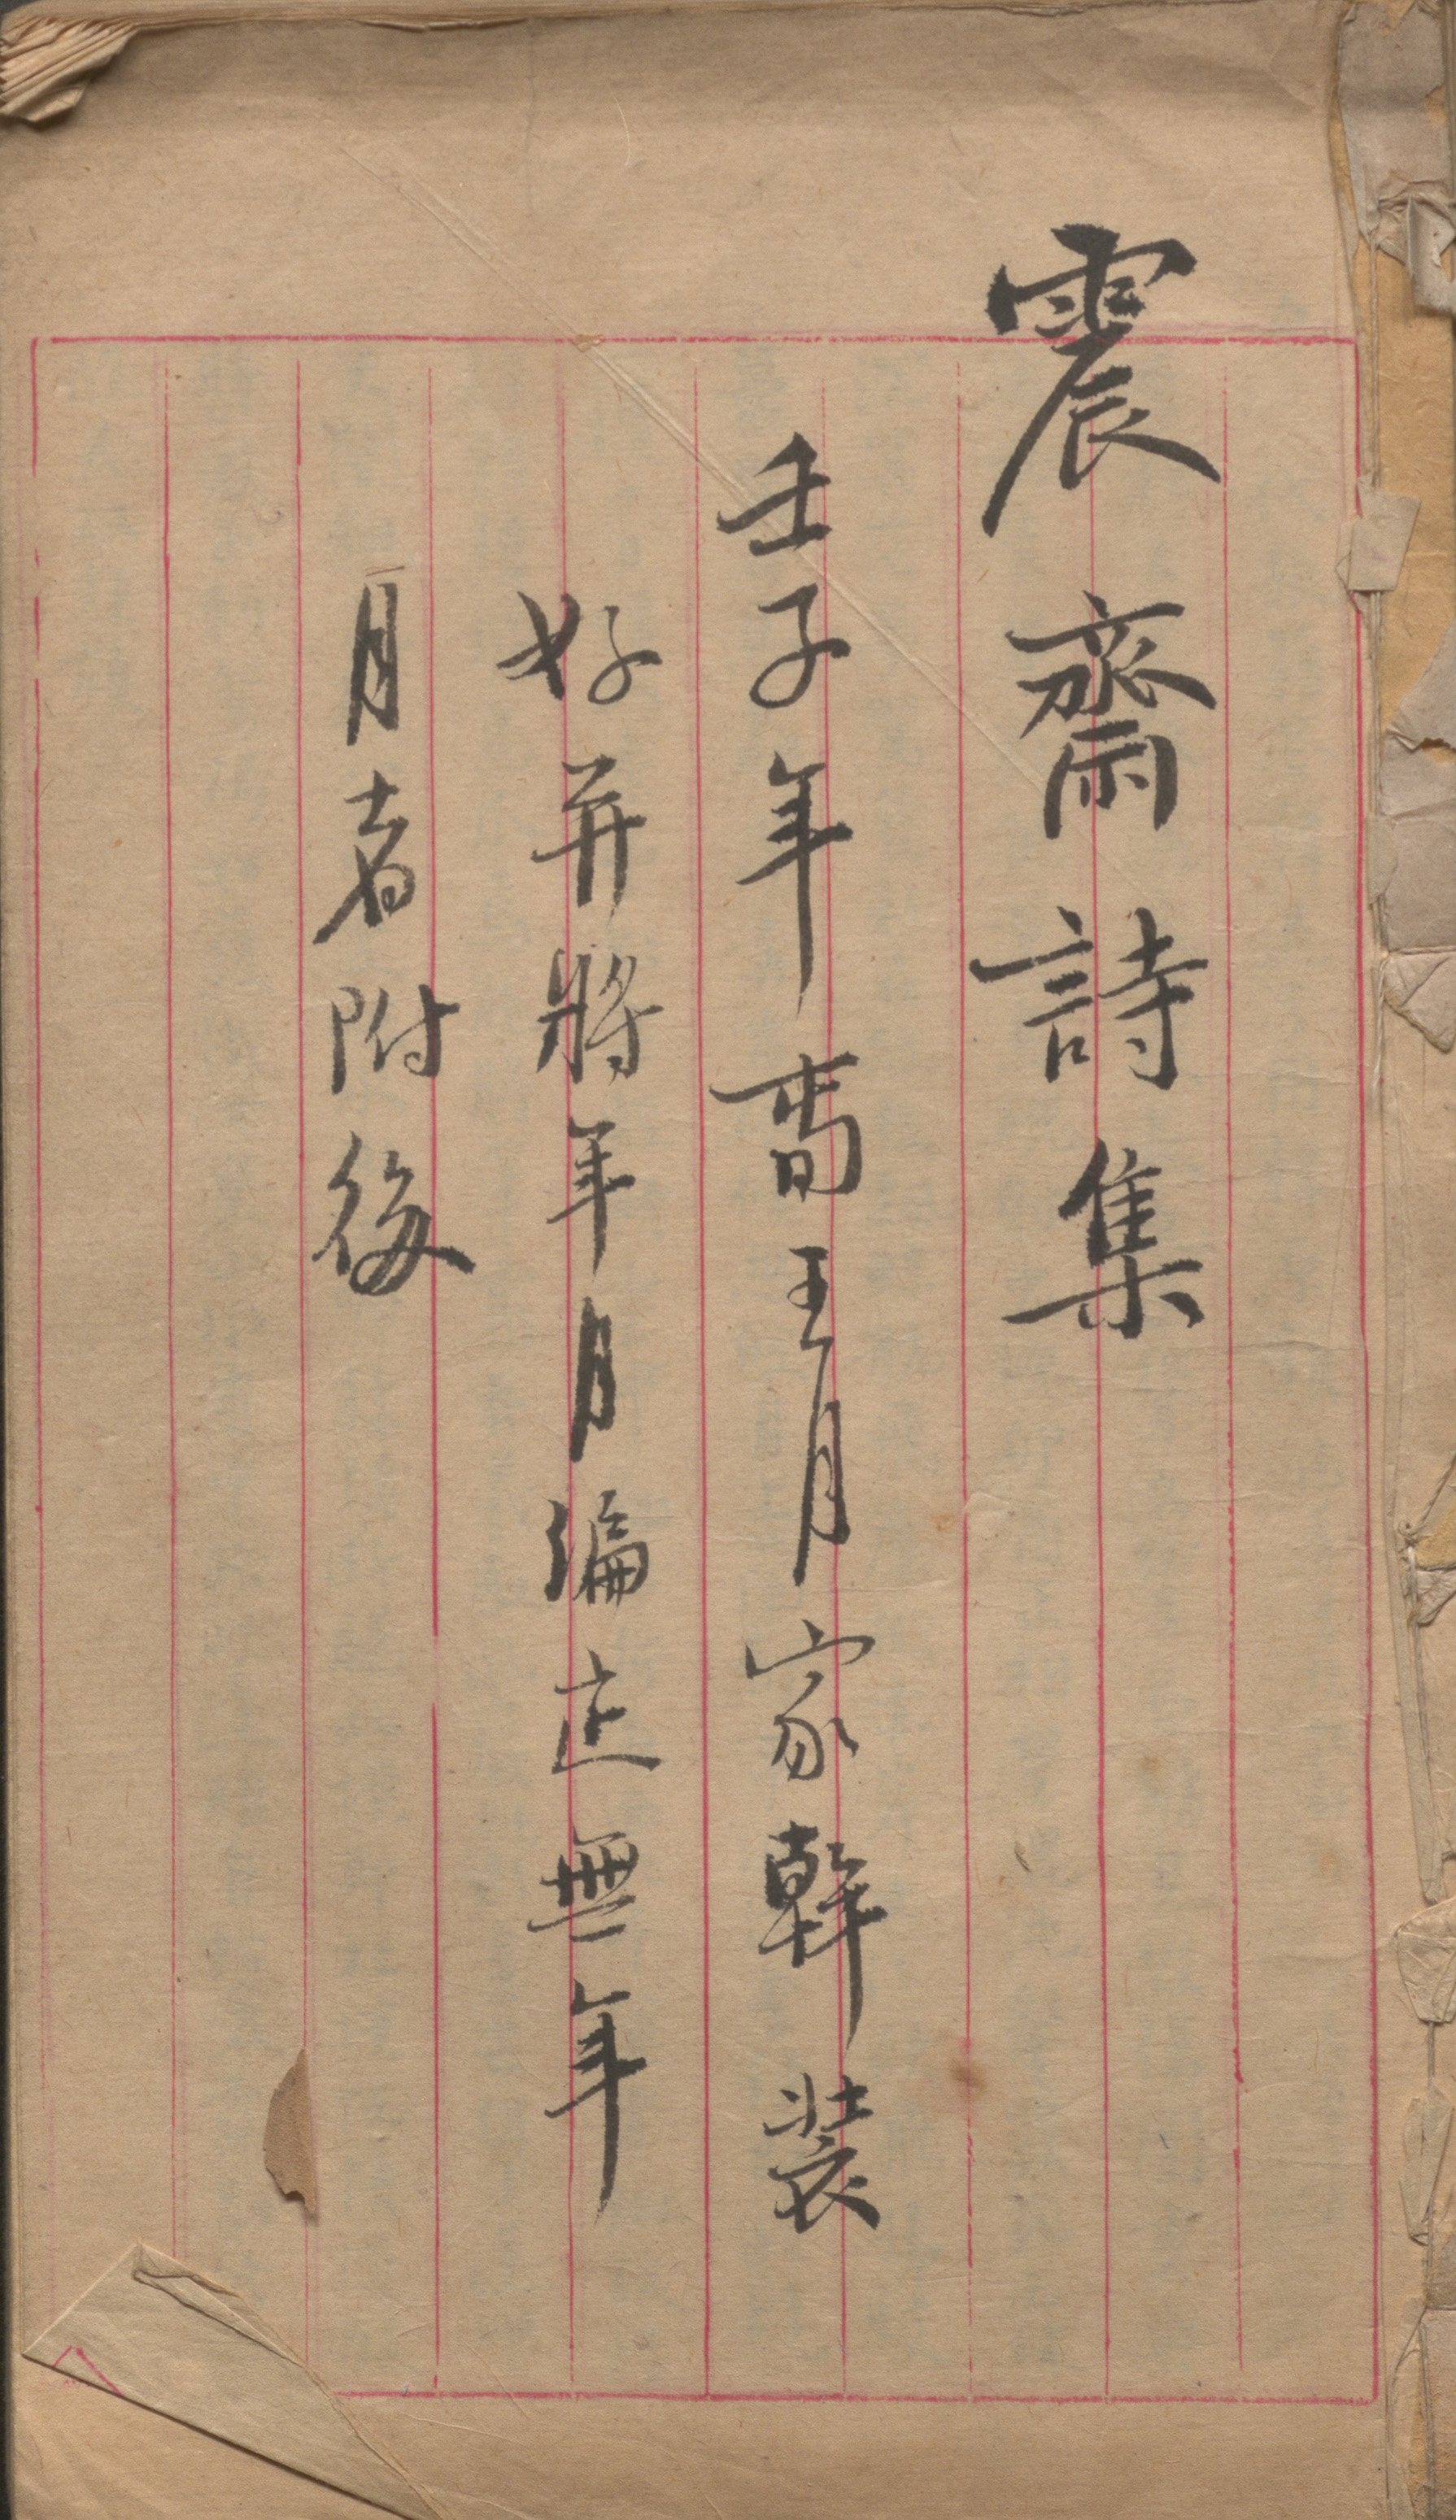 震齋詩集
壬子年春王月家幹裝
好并將年月編定無年
月者附後